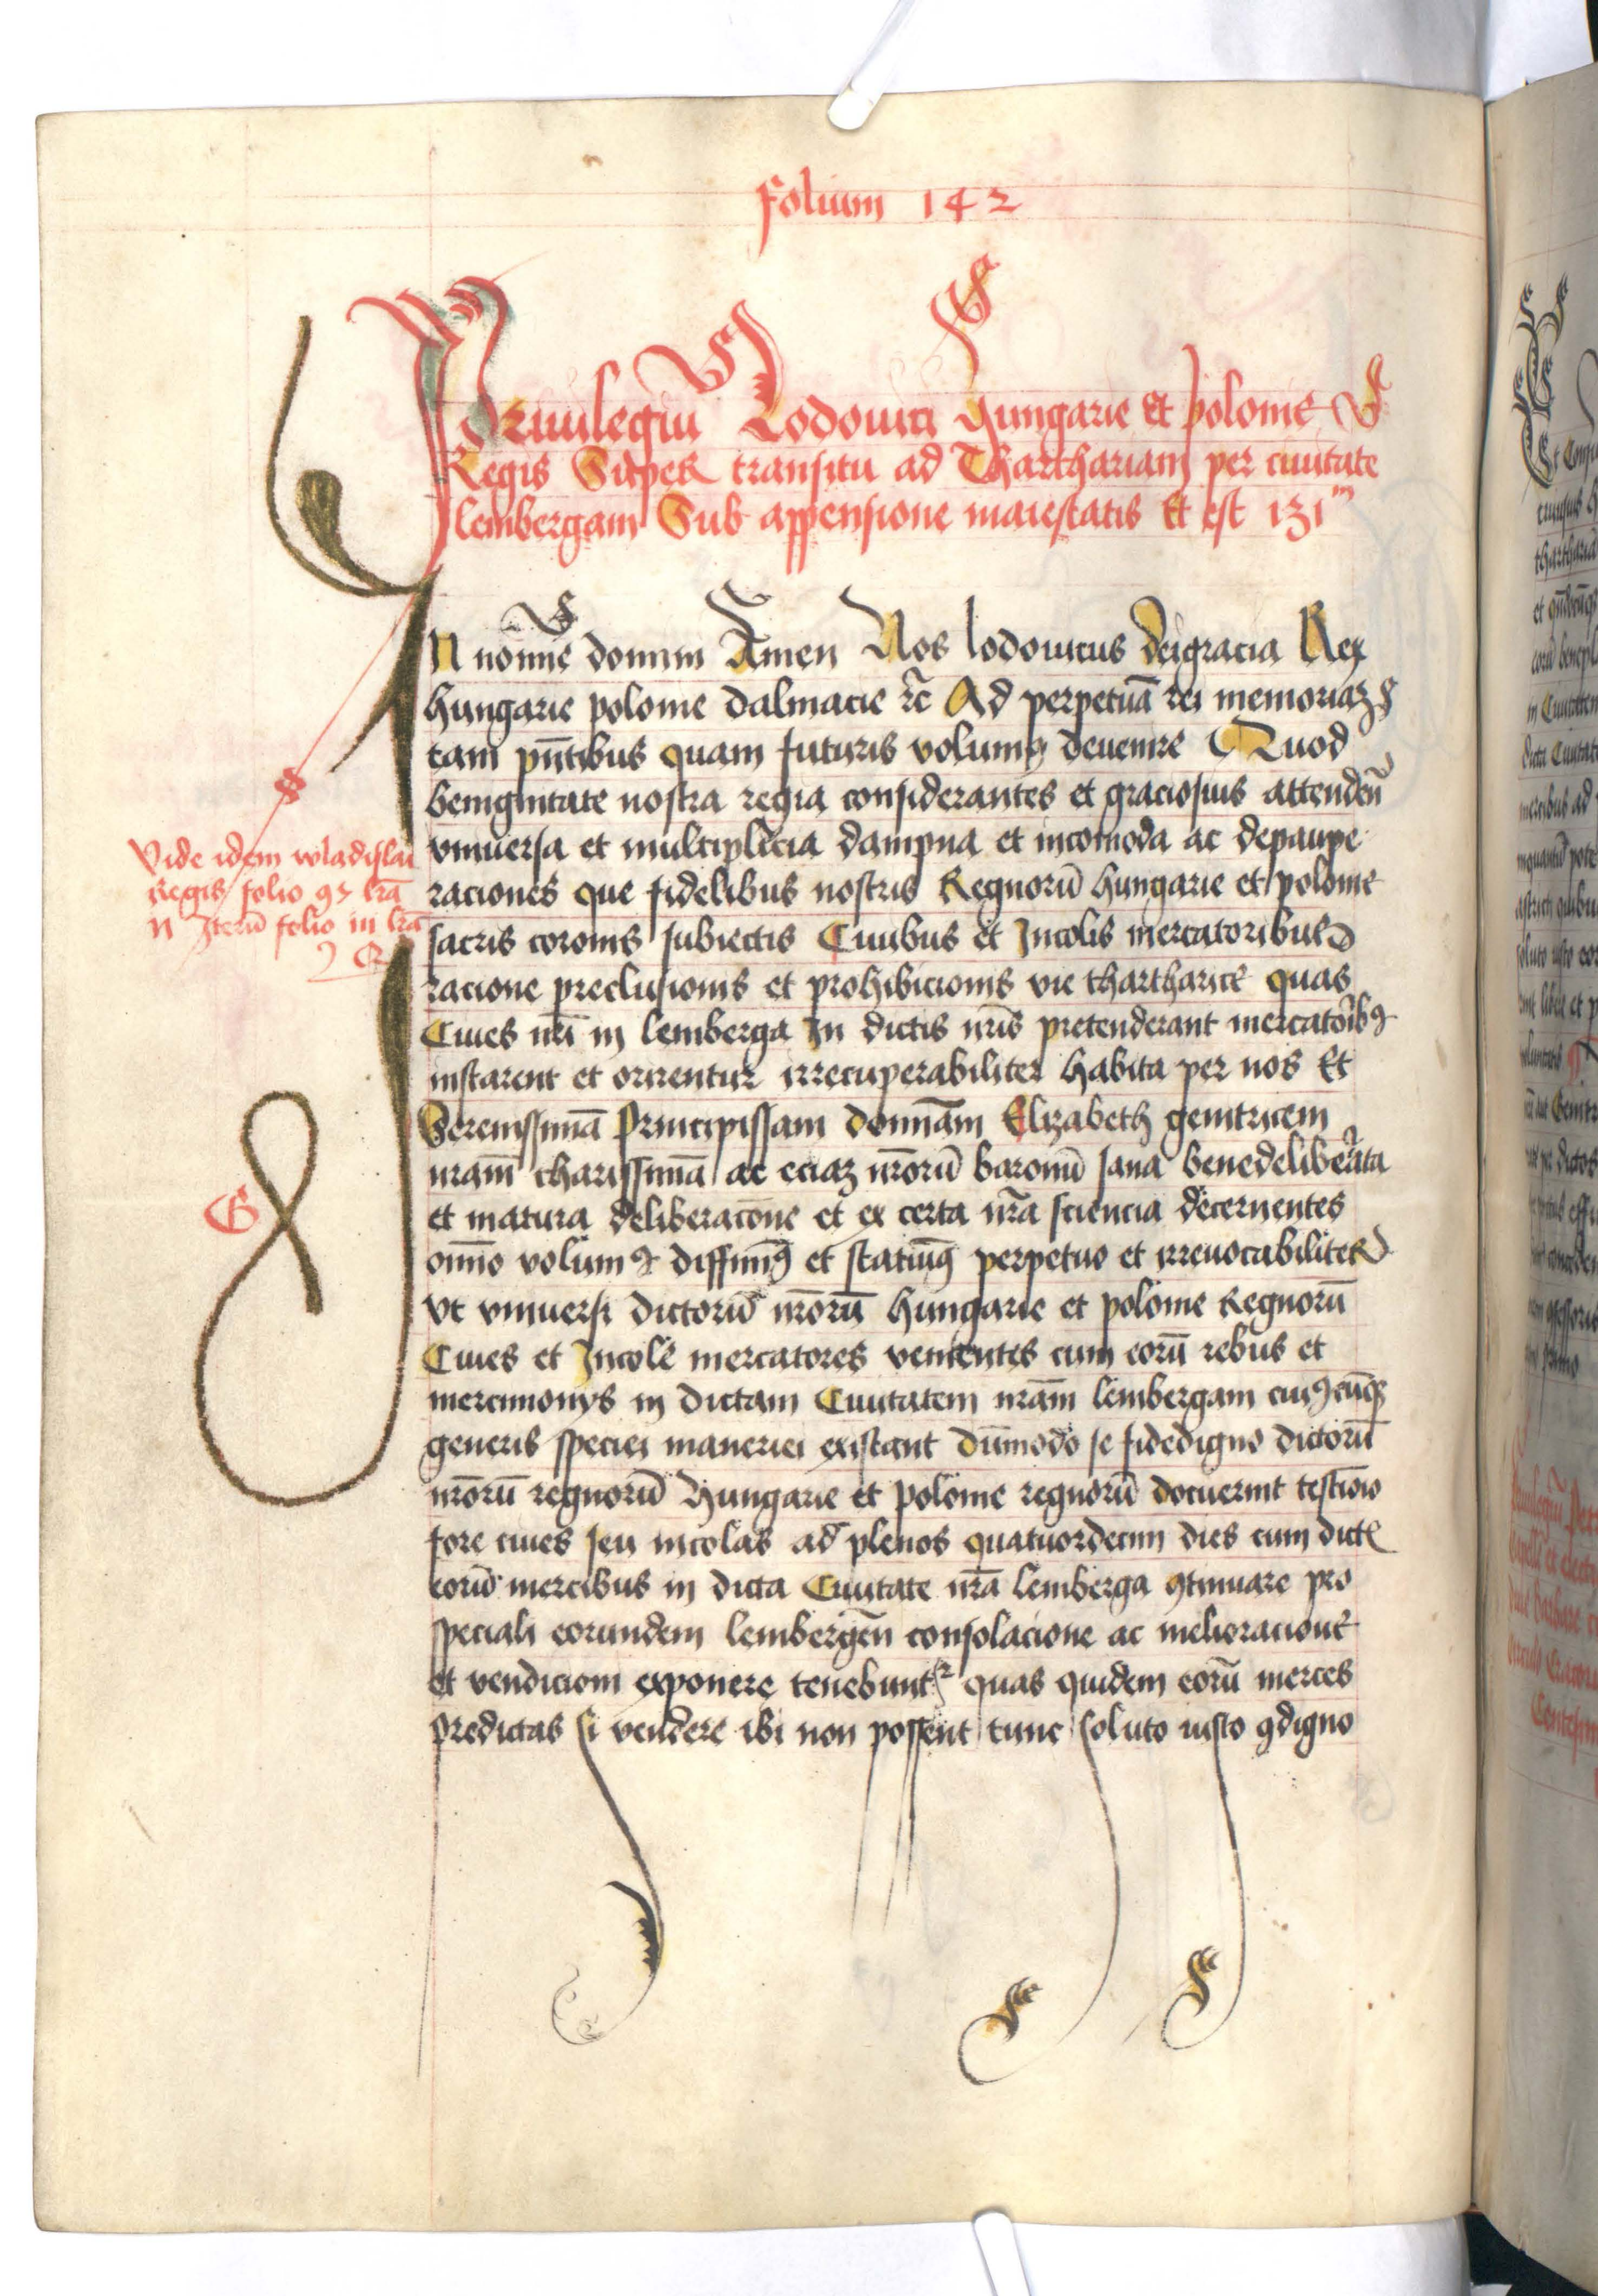 Folium 142
Priuilegiũ Lodouici Hungarie et polonie
Regis Super transitu ad Tharthariam per ciuitatẽ
lembergam Sub appensione maiestatis Et est 131
IN noĩne domini Amen Nos lodouicus deigracia Rex
hungarie polonie dalmacie ⁊c̃ Ad perpetuã rei memoriaꝫ
tam pñtibus quam futuris volumꝰ deuenire Quod
benignitate nostra regia considerantes et graciosius attendeñ
vniuersa et multiplicia dampna et incomoda ac depaupe
raciones que fidelibus nostris Regnorũ hungarie et polonie
sacris coronis subiectis Ciuibus et Incolis mercatoribus
racione preclusionis et prohibicionis vie thartharice quas
Ciues nr̃i in lemberga In dictis nr̃is pretenderant mercatoribꝰ
instarent et orirentur irrecuperabiliter habita per nos Et
Serenissimã Principissam dominam Elizabeth genitricem
nram̃ charissimã ac eciaꝫ nr̃orũ baronũ sana benedeliberata
et matura deliberacõne et ex certa nr̃a sciencia decernentes
om̃no volumꝰ diffinimꝰ et statuimꝰ perpetuo et irreuocabiliter
vt vniuersi dictorũ nr̃orũ hungarie et polonie Regnorũ
Ciues et Incole mercatores venientes cum eorũ rebus et
mercimonys in dictam Ciuitatem nram̃ lembergam cuiꝰcũqꝫ
generis speciei maneriei existant dũmodo se fidedigno dictorũ
nr̃orũ regnorũ Hungarie et polonie regnorũ docuerint testĩonio
fore ciues seu incolas ad plenos quatuordecim dies cum dict̃
eorũ mercibus in dicta Ciuitate nr̃a lemberga ꝯtinuare pro
speciali eorundem lembergeñ consolacione ac melioracione
et vendicioni exponere tenebuntr quas quidem eorũ merces
predictas si vendere ibi non possent tunc soluto iusto ꝯdigno
Vide idem wladislai
Regis folio 97 lr̃a
N Iterũ folio in lr̃a
G